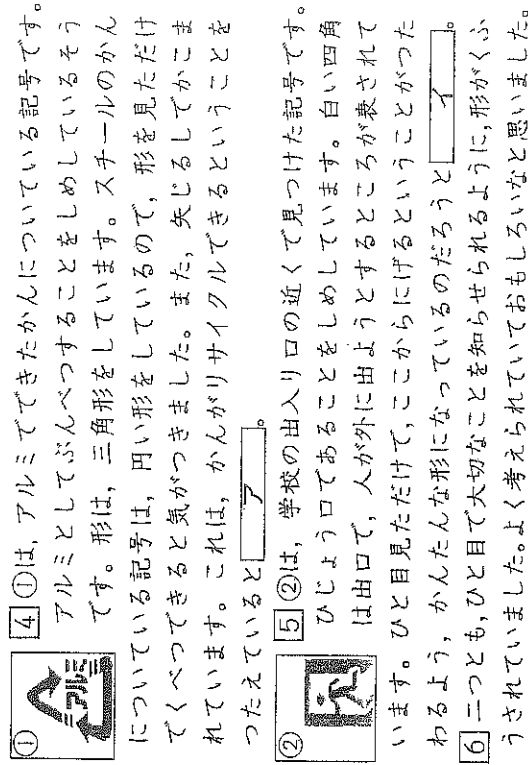 ①
アルミ
4 ①は、アルミでできたかんについている記号です。
アルミとしてぶんべつすることをしめしているそう
です。形は、三角形をしています。スチールのかん
についている記号は、円い形をしているので、形を見ただけ
でくべつできると気がつきました。また、矢じるしでかこま
れています。これは、かんがリサイクルできるということを
つたえていると ア。
②
5 ②は、学校の出入り口の近くで見つけた記号です。
ひじょう口であることをしめしています。白い四角
は出口で、人が外に出ようとするところが表されて
います。ひと目見ただけで、ここからにげるということがつた
わるよう、かんたんな形になっているのだろうと イ。
6 二つとも、ひと目で大切なことを知らせられるように、形がくふ
うされていました。よく考えられていておもしろいなと思いました。